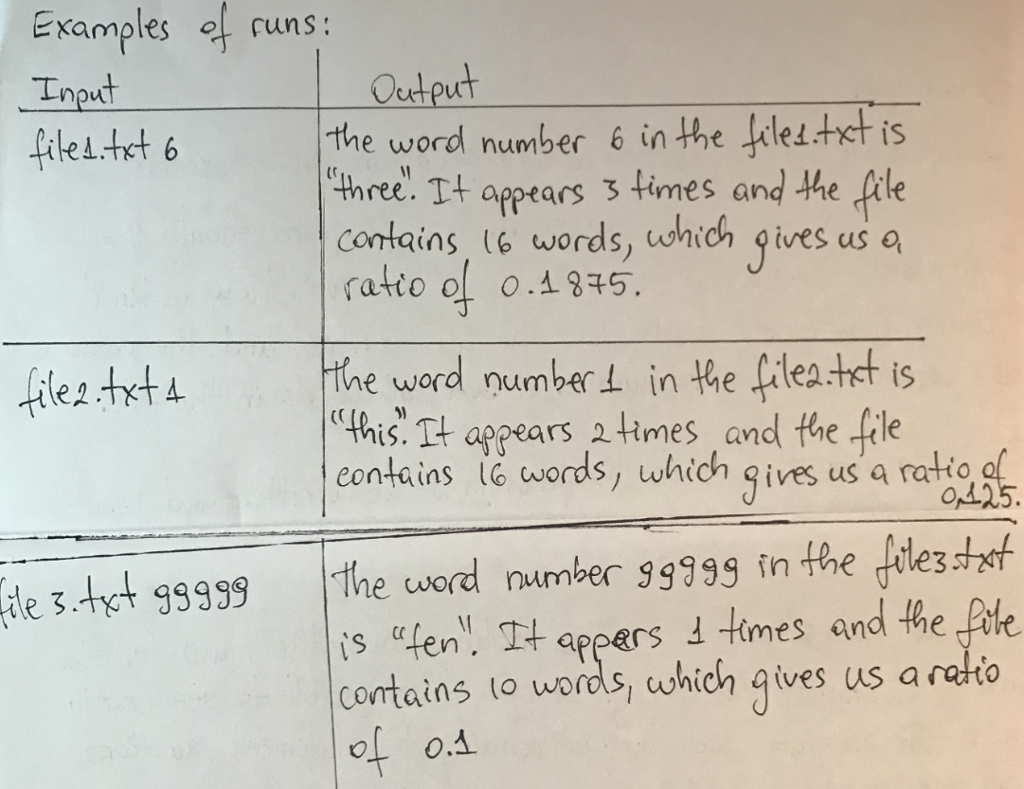 Examples of runs:
Input Output
file1.txt 6
the word number 6 in the file1.txt is
"three". It appears 3 times and the file
contains 16 words, which gives us a
ratio of 0.1875.
file2.txt 1
the word number 1 in the file2.txt is
"this". It appears 2 times and the file
contains 16 words, which gives us a ratio of
0,125.
file3.txt 99999
the word number 99999 in the file3.txt
is "ten". It appers 1 times and the file
contains 10 words, which gives us a ratio
of 0.1